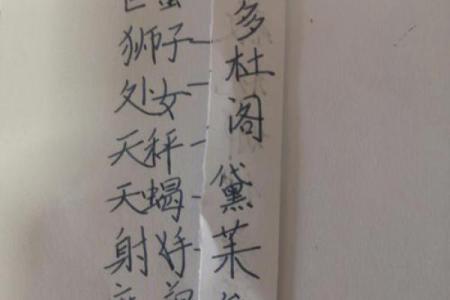 狮子
处女
天秤
天蝎
射手
多杜阁黛茉